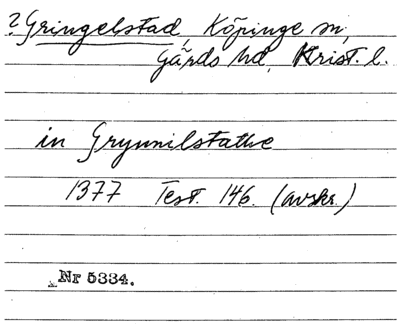 ? Gringelstad, Köpinge sn,
Gärds hd, Krist. l.
in Grymilstathe
1377 Test. 146. (avskr.)
Nr 5334.